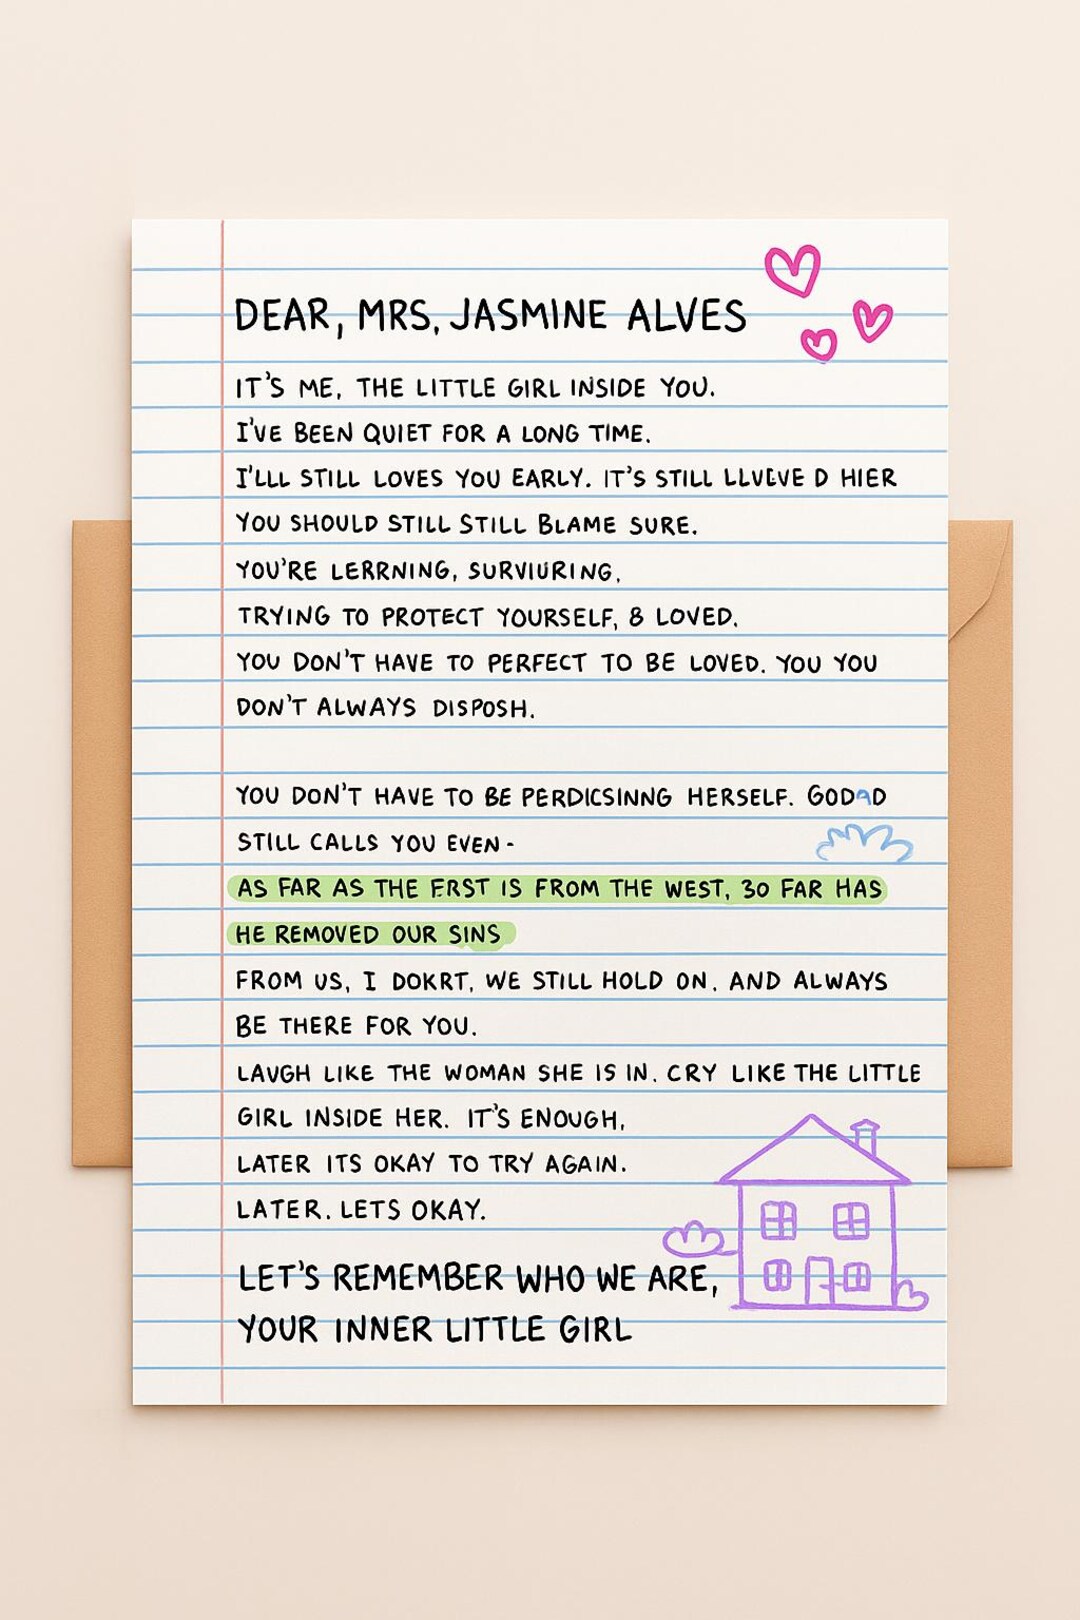 DEAR, MRS. JASMINE ALVES
IT'S ME, THE LITTLE GIRL INSIDE YOU.
I'VE BEEN QUIET FOR A LONG TIME.
I'LLL STILL LOVES YOU EARLY. IT'S STILL HIER
YOU SHOULD STILL STILL BLAME SURE.
YOU'RE LERRNING, SURVIURING,
TRYING TO PROTECT YOURSELF, 8 LOVED.
YOU DON'T HAVE TO PERFECT TO BE LOVED. YOU YOU
DON'T ALWAYS DISPOSH.
YOU DON'T HAVE TO BE PERDICSINNG HERSELF. GODAD
STILL CALLS YOU EVEN-
AS FAR AS THE ERST IS FROM THE WEST, 30 FAR HAS
HE REMOVED OUR SINS
FROM US, I DOKRT, WE STILL HOLD ON. AND ALWAYS
BE THERE FOR YOU.
LAUGH LIKE THE WOMAN SHE IS IN. CRY LIKE THE LITTLE
GIRL INSIDE HER. IT'S ENOUGH,
LATER ITS OKAY TO TRY AGAIN.
LATER. LETS OKAY.
LET'S REMEMBER WHO WE ARE,
YOUR INNER LITTLE GIRL